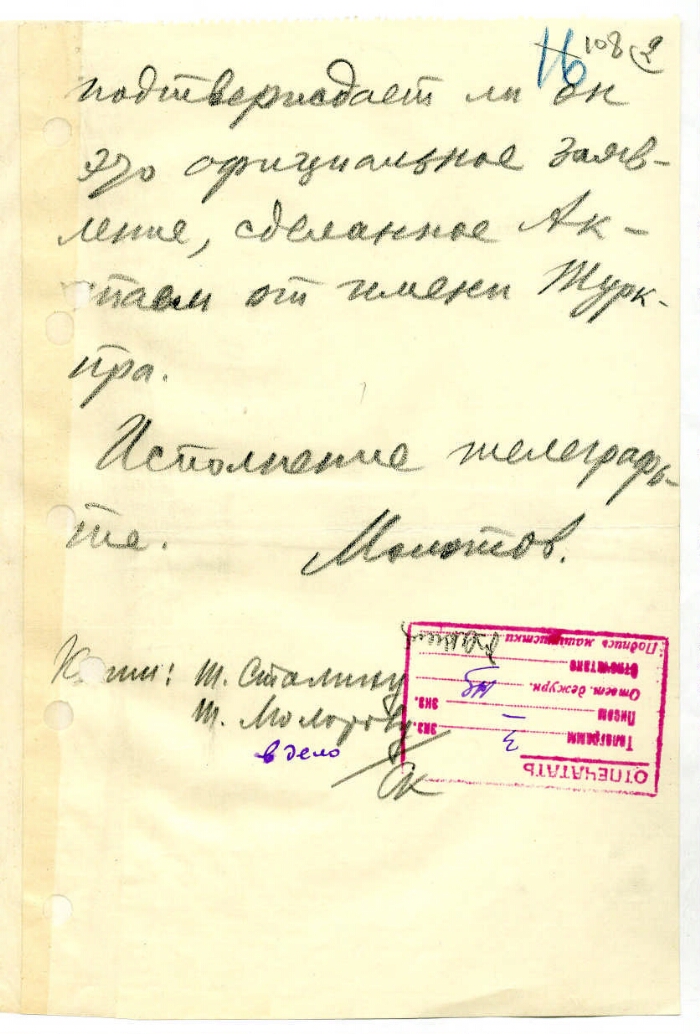 16 108 2
подтверждает ли он
это официальное заяв-
ление, сделанное Ак-
таем от имени Турк-
пра.
Исполнение телеграфь-
те. Молотов.
Копии: т. Сталину
т. Молотову.
в дело
ОТПЕЧАТАТЬ
Телеграмм 3 экз.
Писем — экз.
Ответ. дежурн.
Отпечатано
Подпись машинистки